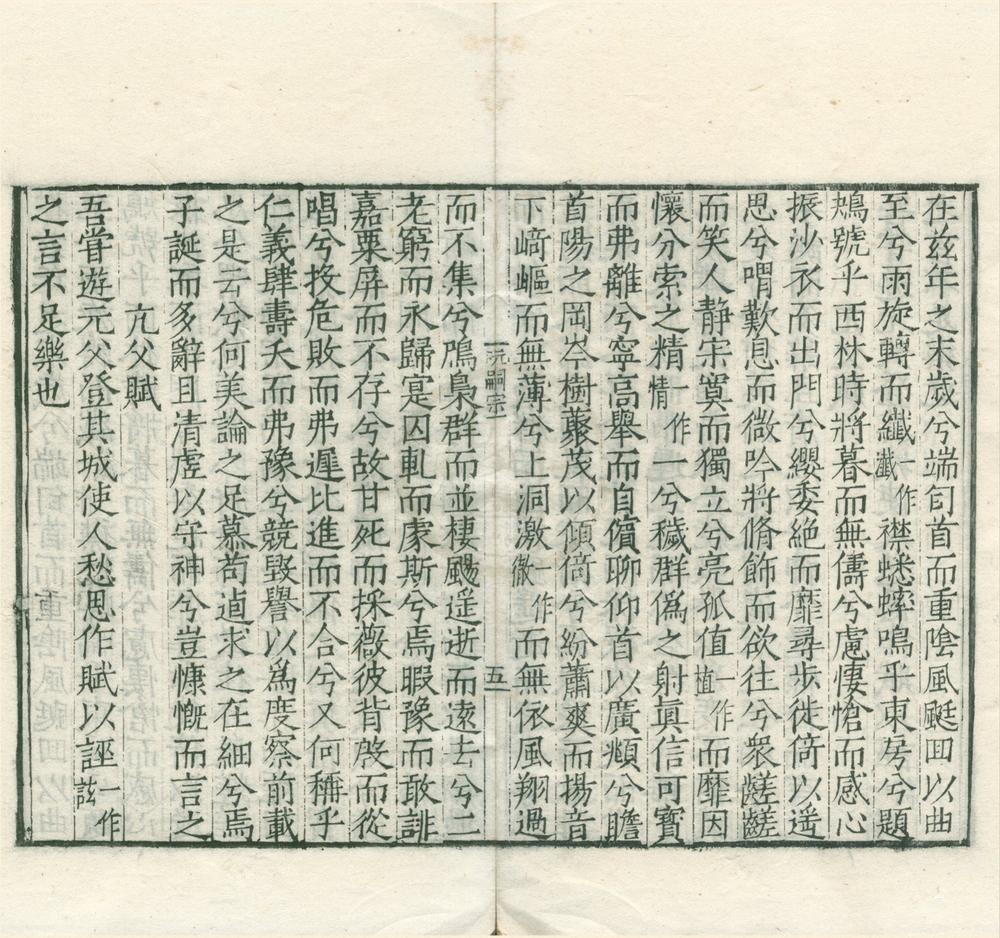 在茲年之末歲兮端匃首而重陰風颾囬以曲
至兮雨旋轉而纖一作瀸襟蟋蟀鳴乎東房兮題
鴂號乎西林時將暮而無儔兮慮悽愴而感心
振沙衣而出門兮纓委絶而靡尋步徙倚以遥
思兮喟歎息而微吟將脩飾而欲往兮衆齹齹
而笑人静宋寞而獨立兮亮孤值一作植而靡因
懷分索之精一作情一兮穢群偽之射真信可寳
而弗離兮寧高舉而自儐聊仰首以廣頫兮瞻
首陽之岡岑樹藂茂以傾倚兮紛蕭爽而揚音
下﨑嶇而無薄兮上洞激一作徹而無依風翔過
阮嗣宗 五
而不集兮鳴梟群而並棲颺遥逝而遠去兮二
老窮而永歸寔囚軋而䖏斯兮焉暇豫而敢誹
嘉粟屏而不存兮故甘死而採薇彼背殷而從
唱兮投危敗而弗遲比進而不合兮又何稱乎
仁義肆壽夭而弗豫兮競毀譽以爲度察前載
之是云兮何美論之足慕苟道求之在細兮焉
子誕而多辭且清虗以守神兮豈慷慨而言之
亢父賦
吾甞遊元父登其城使人愁思作賦以誣一作詃
之言不足樂也